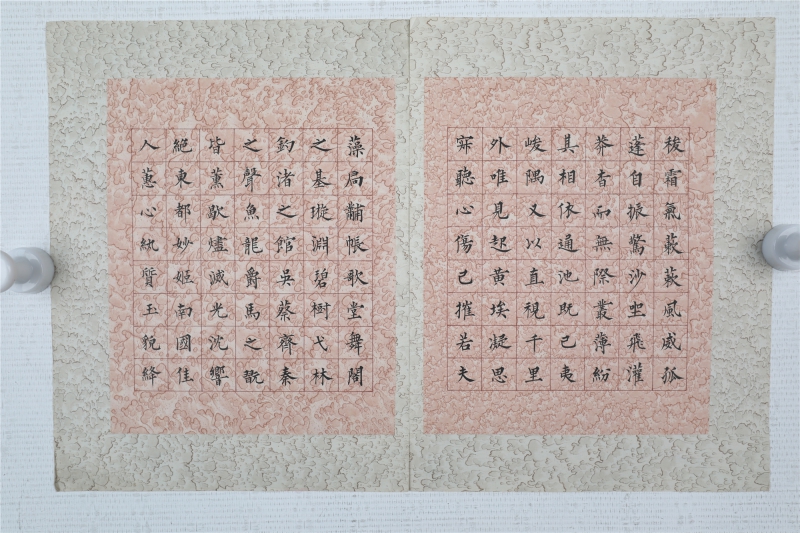 稜霜氣蔌蔌風威孤
蓬自振驚沙坐飛灌
莽杳而無際叢薄紛
其相依通池既已夷
峻隅又以直視千里
外唯見起黃埃凝思
寂聽心傷已摧若夫
藻扃黼帳歌堂舞閣
之基璇淵碧樹弋林
釣渚之館吳蔡齊秦
之聲魚龍爵馬之翫
皆薰歇燼滅光沈響
絕東都妙姬南國佳
人蕙心紈質玉貌絳